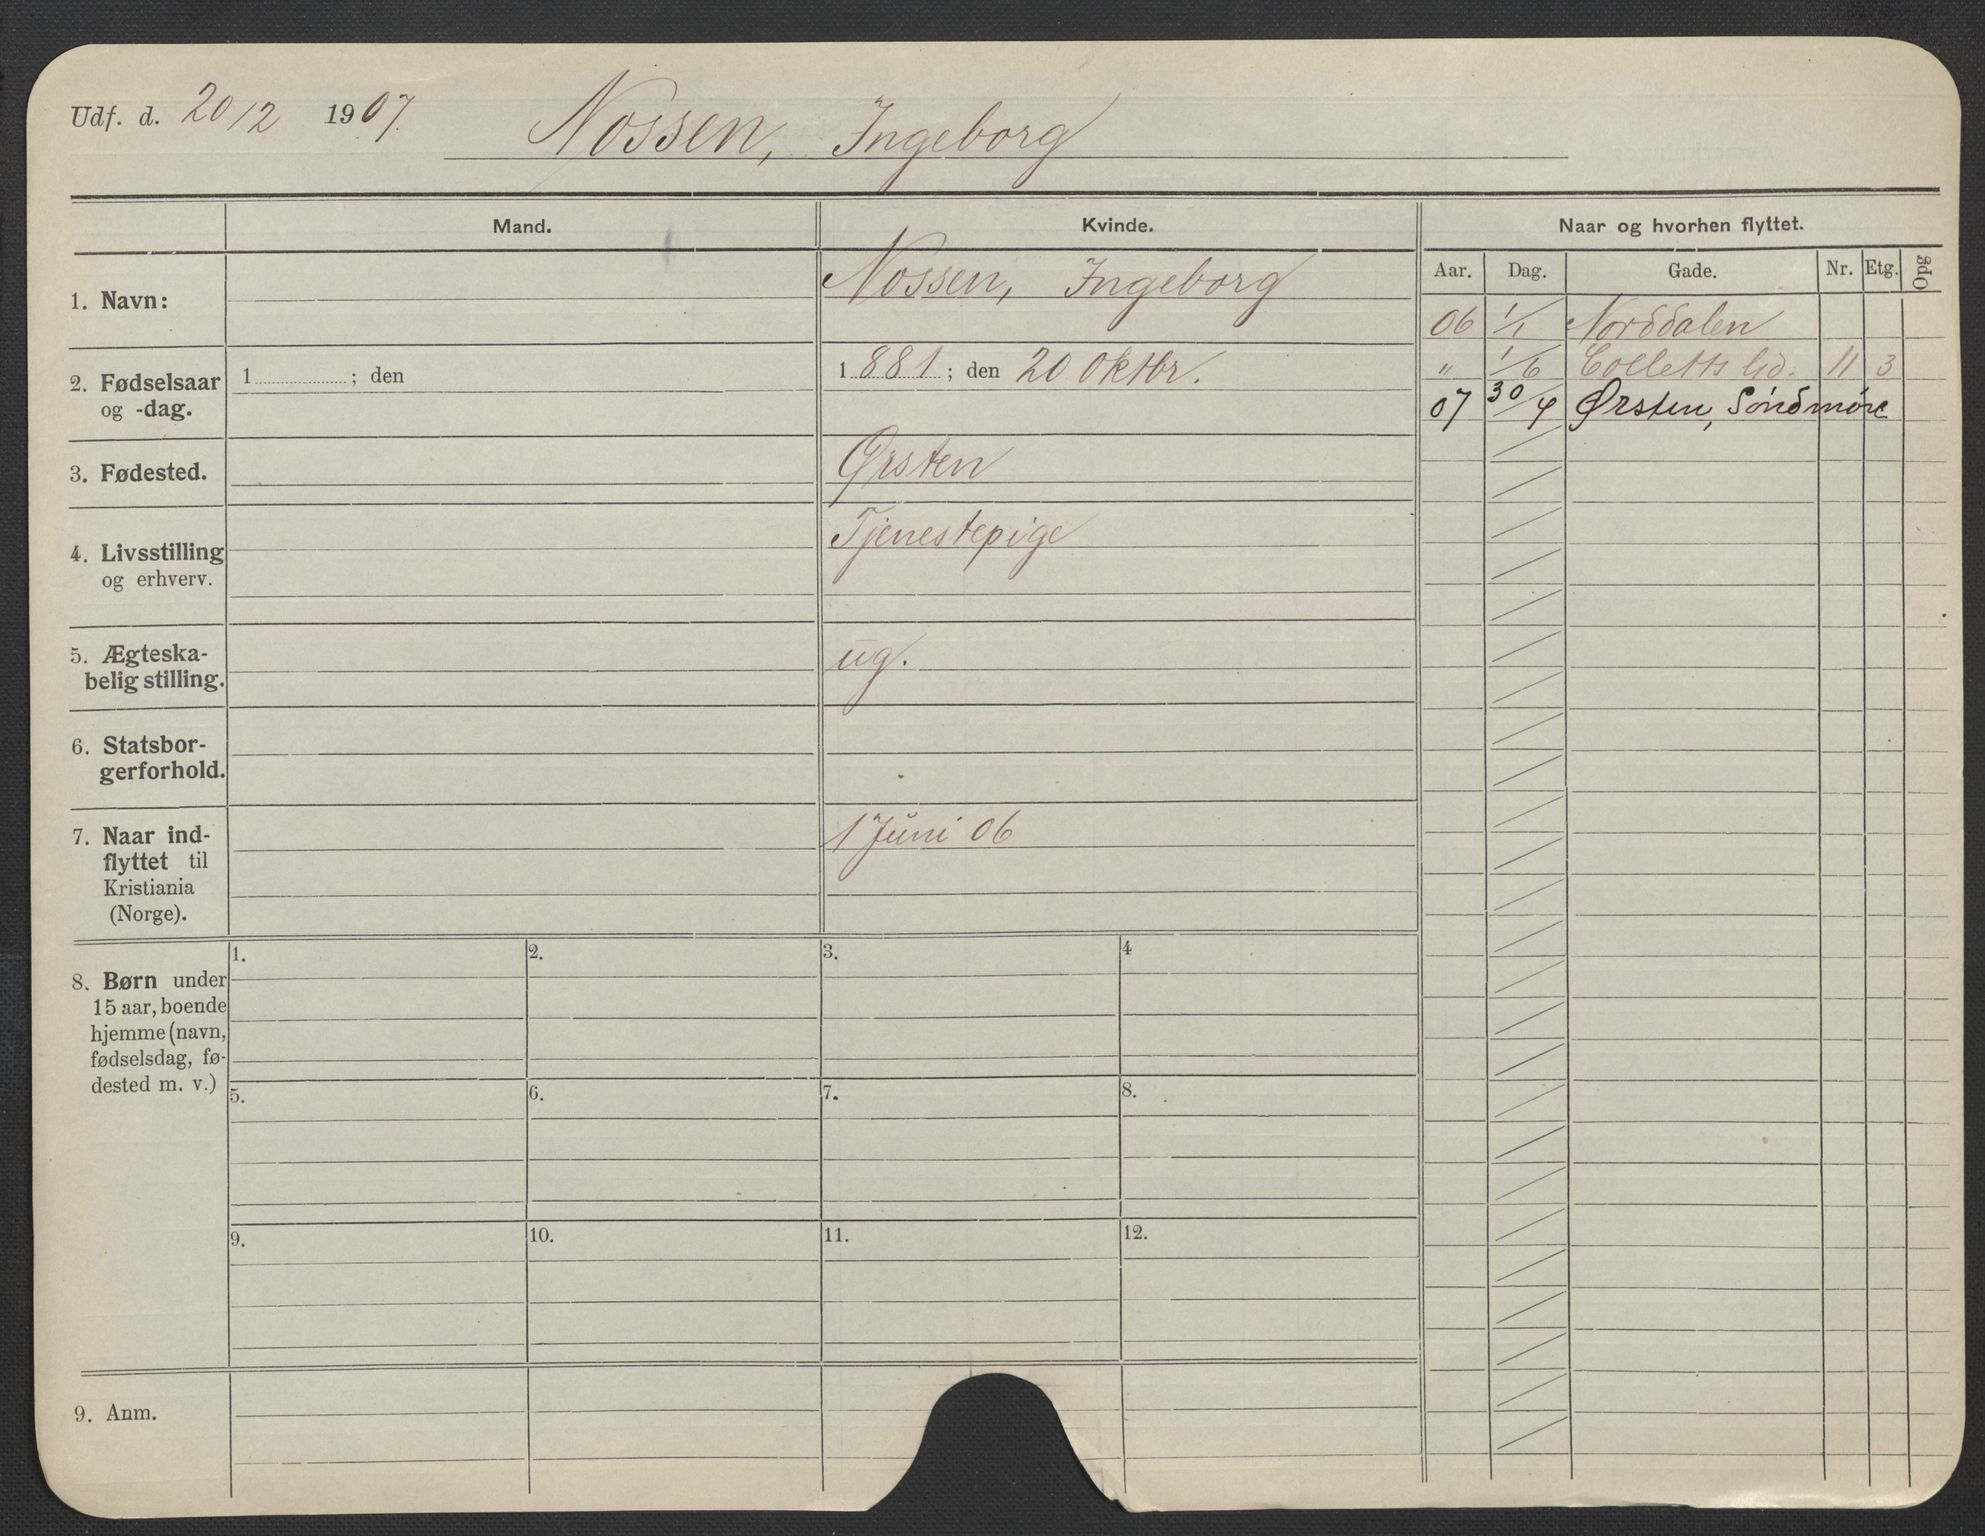 Udf. d. 20/2 1907. Nossen, Ingeborg
Mand. Kvinde. Naar og hvorhen flyttet.
Aar. Dag. Gade. Nr. Etg. Opg
1. Navn: Nossen, Ingeborg
06 1/1 Norddalen
" 1/6 Colletts 11 3
07 30/4 Ørsten, Söndmøre
2. Fødselsaar og -dag. 1 ; den 1881; den 20 Oktbr.
3. Fødested. Ørsten
4. Livsstilling og erhverv. Tjenestepige
5. Ægteska-
belig stilling. ug.
6. Statsbor-
gerforhold.
7. Naar ind-
flyttet til
Kristiania
(Norge). 1 Juni 06
8. Børn under
15 aar, boende
hjemme (navn,
fødselsdag, fø-
dested m. v.)
1. 2. 3. 4
5. 6. 7. 8.
9. 10. 11. 12.
9. Anm.